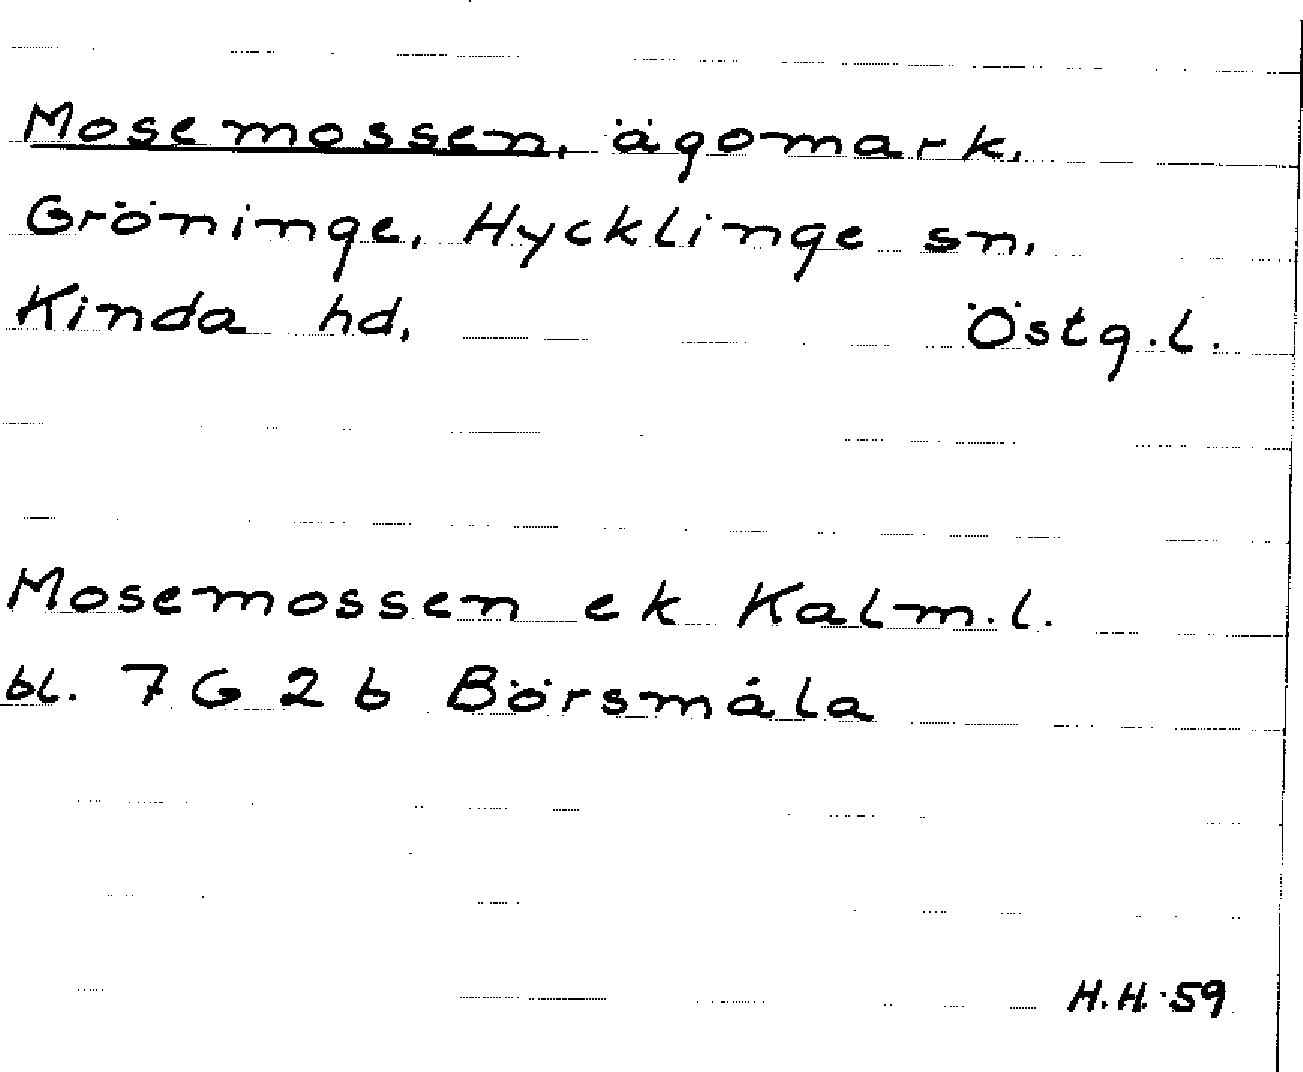 Mosemossen, ägomark.
Gröninge, Hycklinge sn,
Kinda hd, Östg.l.
Mosemossen ek Kalm.l.
bl. 7G2b Börsmåla
H.H. 59